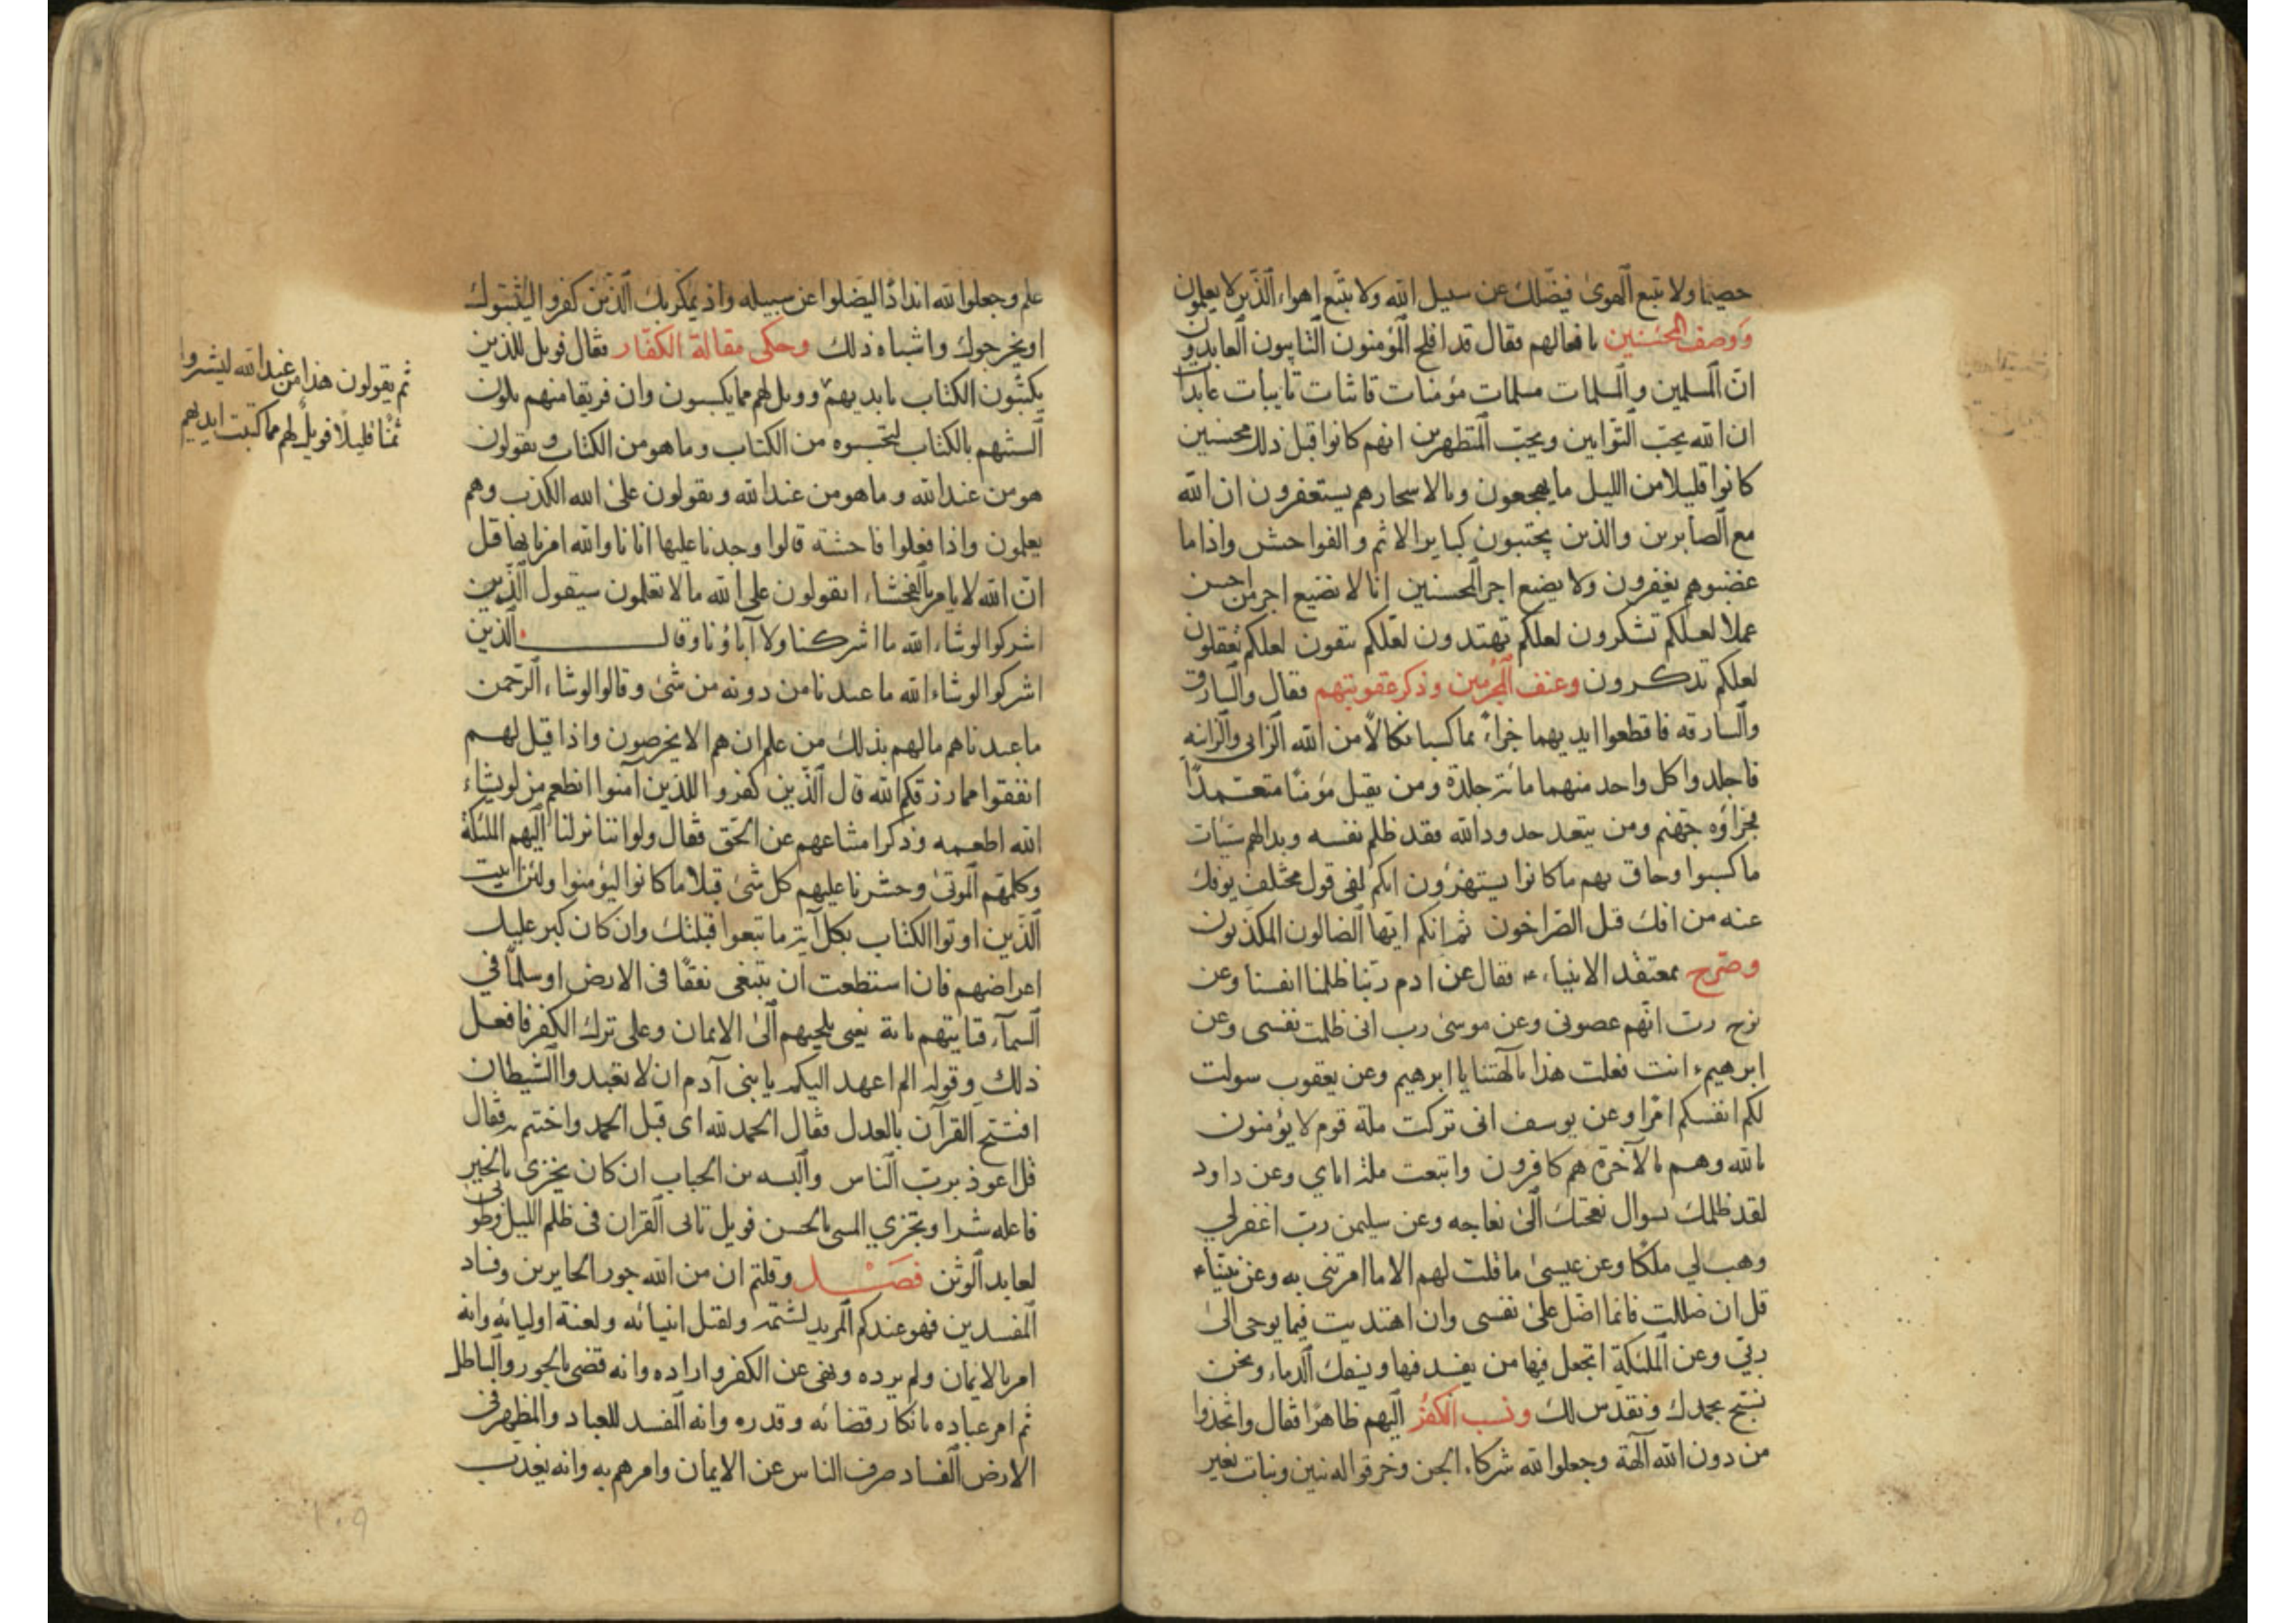 حصيما ولا تتبع الهوى فيضلك عن سبيل الله ولا تتبع اهواء الذين لا يعلمون
ووصف المحسنين بافعالهم فقال قد افلح المؤمنون التائبون العابدون
ان المسلمين والمسلمات مسلمات مؤمنات قانتات تايبات عابدات
ان الله يحب التوابين ويحب المتطهرين انهم كانوا قبل ذلك محسنين
كانوا قليلا من الليل ما يهجعون وبالاسحار هم يستغفرون ان الله
مع الصابرين والذين يجتنبون كباير الاثم والفواحش واذا ما
غضبوا هم يغفرون ولا يضيع اجر المحسنين انا لا نضيع اجر من احسن
عملا لعلكم تشكرون لعلكم تهتدون لعلكم تتقون لعلكم تعقلون
لعلكم تذكرون وعنف المجرمين وذكر عقوبتهم فقال والسارق
والسارقه فاقطعوا ايديهما جزاء بما كسبا نكالا من الله الزانى والزانيه
فاجلدوا كل واحد منهما مائة جلدة ومن يقتل مؤمنا متعمدا
فجزاؤه جهنم ومن يتعد حدود الله فقد ظلم نفسه وبدا لهم سيئات
ما كسبوا وحاق بهم ما كانوا يستهزؤن انكم لفى قول مختلف يوفك
عنه من افك قتل الخراصون ثم انكم ايها الضالون المكذبون
وصرح بمعتقد الانبياء ع فقال عن ادم ربنا ظلمنا انفسنا وعن
نوح رب انهم عصونى وعن موسى رب انى ظلمت نفسى وعن
ابرهيم انت فعلت هذا بالهتنا يا ابرهيم وعن يعقوب سولت
لكم انفسكم امرا وعن يوسف انى تركت ملة قوم لا يؤمنون
بالله وهم بالآخرة هم كافرون واتبعت ملة اباي وعن داود
لقد ظلمك بسوال نعجتك الى نعاجه وعن سليمن رب اغفر لي
وهب لي ملكا وعن عيسى ما قلت لهم الا ما امرتنى به وعن نبينا ء
قل ان ضللت فانما اضل على نفسى وان اهتديت فبما يوحى الى
ربي وعن الملئكة اتجعل فيها من يفسد فيها ويسفك الدماء ونحن
نسبح بحمدك ونقدس لك ونسب الكفر اليهم ظاهرا فقال واتخذوا
من دون الله آلهة وجعلوا لله شركاء الجن وخرقوا له بنين وبنات بغير
علم وجعلوا لله اندادا ليضلوا عن سبيله واذ يمكر بك الذين كفروا ليثبتوك
او يخرجوك واشباه ذلك وحكى مقالة الكفار فقال فويل للذين
يكتبون الكتاب بايديهم وويل لهم مما يكسبون وان فريقا منهم يلون
السنتهم بالكتاب لتحسبوه من الكتاب وما هو من الكتاب ويقولون
هو من عند الله وما هو من عند الله ويقولون على الله الكذب وهم
يعلمون واذا فعلوا فاحشة قالوا وجدنا عليها اباءنا والله امرنا بها قل
ان الله لا يامر بالفحشاء اتقولون على الله ما لا تعلمون سيقول الذين
اشركوا لو شاء الله ما اشركنا ولا آباؤنا وقال الذين
اشركوا لو شاء الله ما عبدنا من دونه من شئ وقالوا لو شاء الرحمن
ما عبدناهم مالهم بذلك من علم ان هم الا يخرصون واذا قيل لهم
انفقوا مما رزقكم الله قال الذين كفروا للذين آمنوا انطعم من لو يشاء
الله اطعمه وذكر امتناعهم عن الحق فقال ولو اننا نزلنا اليهم الملئكة
وكلمهم الموتى وحشرنا عليهم كل شئ قبلا ما كانوا ليؤمنوا ولئن اتيت
الذين اوتوا الكتاب بكل آية ما تبعوا قبلتك وان كان كبر عليك
اعراضهم فان استطعت ان تبتغى نفقا فى الارض او سلما في
السماء فتاتيهم باية يعنى يلجيهم الى الايمان وعلى ترك الكفر فافعل
ذلك وقوله الم اعهد اليكم يا بنى آدم ان لا تعبدوا الشيطان
افتتح القرآن بالعدل فقال الحمد لله اى قبل الحمد واختتم به فقال
قل اعوذ برب الناس والبسه من الحباب ان كان يجزى بالخير
فاعله شرا ويجزي المسى بالحسن فويل تالى القران فى ظلم الليل وطوبى
لعابد الوثن فصل وقلتم ان من الله جور الجايرين وفساد
المفسدين فهو عندكم المريد لشتمه ولقتل انبيائه ولعنة اوليائه وانه
امر بالايمان ولم يرده ونهى عن الكفر واراده وانه قضى بالجور والباطل
ثم امر عباده بانكار قضائه وقدره وانه المفسد للعباد والمظهر فى
الارض الفساد صرف الناس عن الايمان وامرهم به وانه يعذب
ثم يقولون هذا من عند الله ليشتروا
ثمنا قليلا فويل لهم مما كتبت ايديهم